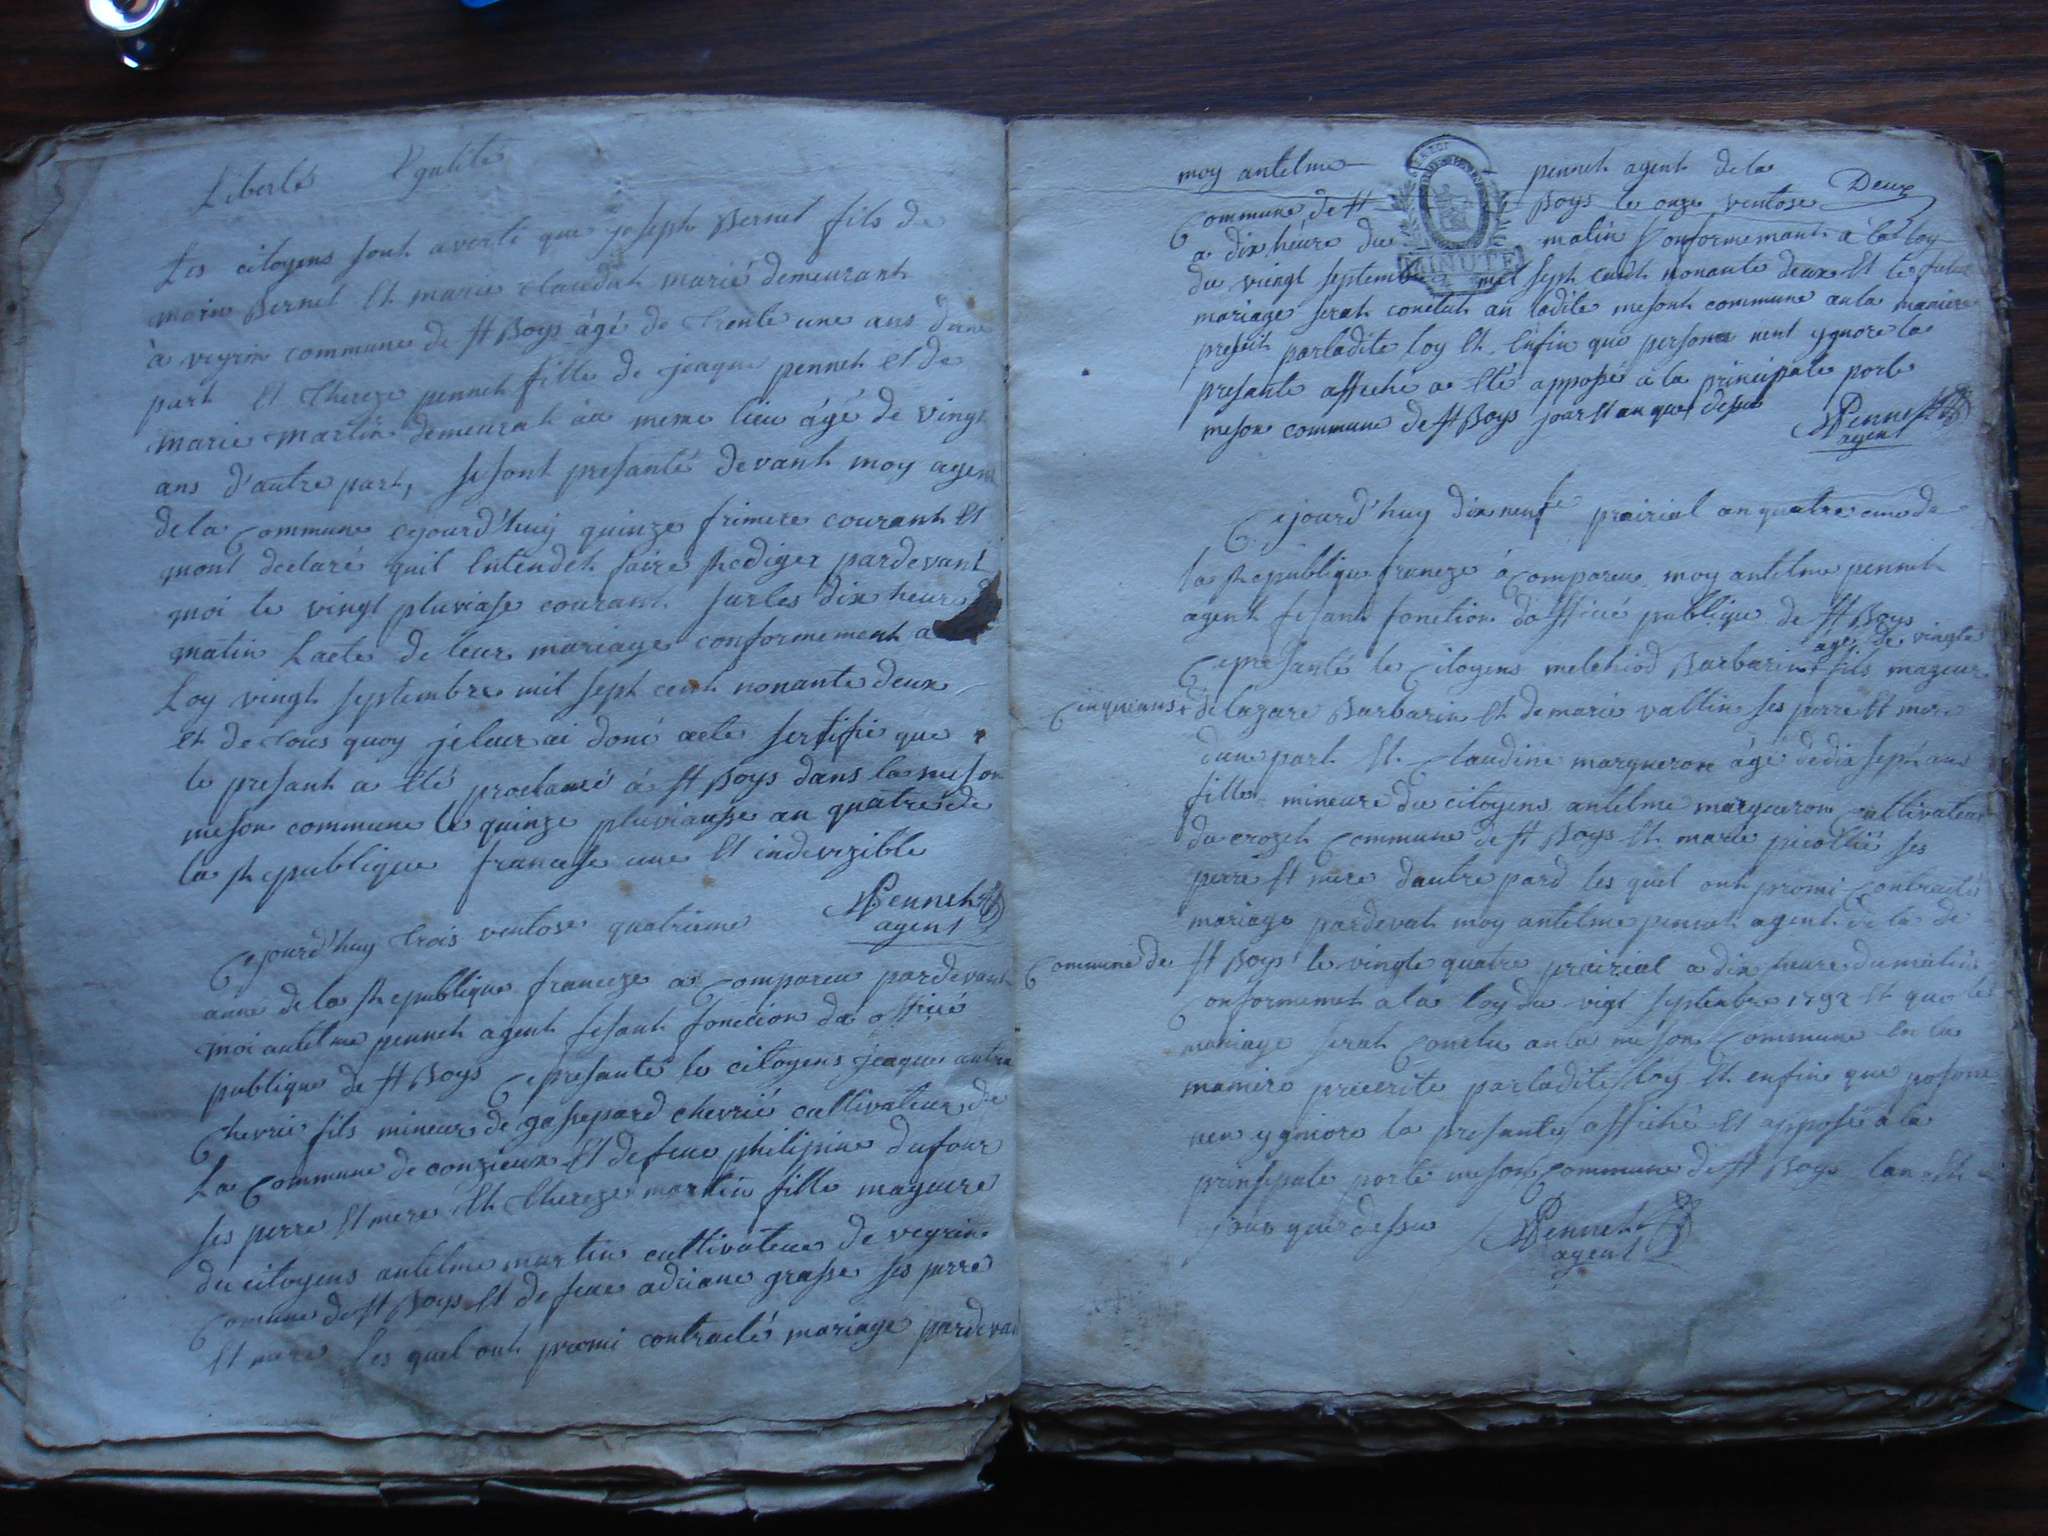 Liberté Egalite
Les citoyens sont averti que joseph Bernet fils de
marin Bernet Et marie claudat marié demeurant
à veyrin commune de St Boys âgé de trente une ans dune
part Et thereze pennet fille de jeaque pennet et de
marie martin demeurat au meme lieu âgé de vingt
ans d'autre part, se sont presanté devant moy agent
de la Commune cejourd'huy quinze frimere courant Et
mont declaré quil Entendet faire Rediger pardevant
moi le vingt pluviase courant sur les dix heure d
matin Lacte de leur mariage conformement a
Loy vingt septembre mil sept cent nonante deux
Et de tous quoy je leur ai doné acte sertifié que
le presant a Eté proclamé à St Boys dans la meson
meson commune le quinze pluviause an quatre de
la Republique francese une Et indivizible
Pennet
agent
Cejourd'huy trois ventose quatrieme
anné de la Republique franceze a Compareu pardevant
moi antelme pennet agent fesant foncion da officié
publique de St Boys Ce presanté le citoyens jeaque antre
Chevrié fils mineur de gaspard chevrié cultivateur de
La Commune de conzieux Et de feue philipine dufour
ses perre Et mere Et thereze martin fille mageure
du citoyens antelme martin cultivateur de veyrin
Comune de St Boys Et de feue adriane grasse ses perre
Et mere les quel ont promi contracté mariage pardevan
moy antelme pennet agent de la
Deux
Commune de St Boys le onze ventose
a dix heure du matin Conformemant à la loy
MINUTE
du vingt septembre mil sept cendt nonante deux Et le futur
mariage serat conclut an ladite mesont commune an la maniere
presscit par ladite loy Et Enfin que persone nent ygnore la
presante affiché a Eté apposé à la principale porte
meson commune de St Boys jour et an que dessu
Pennet
agent
Cejourd'huy dix neuf prairial an quatre eme de
la Republique franceze à Compareu moy antelme pennet
agent fesant fonction da officié publique de St Boys
agé de vingte
Ce presanté le Citoyens melchiod Barbarin + fils mageur
Cinque ans + de lazare Barbarin Et de marie vallin ses perre Et mere
dune part Et Claudine margueron âgé de dix sept ans
fille mineure du citoyens antelme margueron cultivateur
du crozet Commune de St Boys Et marie picollié ses
perre Et mere dautre pard les quel ont promi Contracté
mariage pardevat moy antelme pennet agent de la de
Commune de St Boys le vingte quatre prairial a dix heure du matin
Conformemet a la loy du vigt septenbre 1792 Et que le
mariage serat Conclu an la meson Commune En la
maniere precrite par ladite loy Et enfin que persone
nen ygniore la presante affiché Et apposé a la
prinsipale porte meson Commune de St Boys lan Et
jour que dessu
Pennet
agent